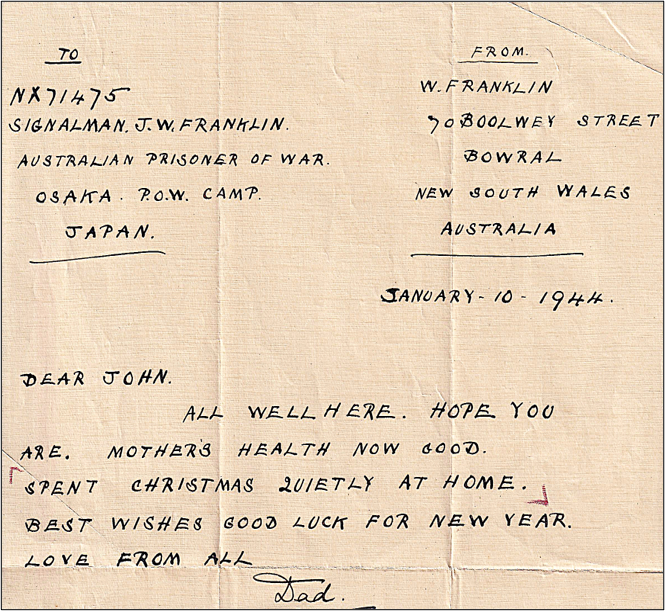 TO
NX71475
SIGNALMAN. J.W. FRANKLIN.
AUSTRALIAN PRISONER OF WAR.
OSAKA. P.O.W. CAMP.
JAPAN.
FROM.
W. FRANKLIN
70 BOOLWEY STREET
BOWRAL
NEW SOUTH WALES
AUSTRALIA
JANUARY - 10 - 1944.
DEAR JOHN.
ALL WELL HERE. HOPE YOU
ARE. MOTHER'S HEALTH NOW GOOD.
SPENT CHRISTMAS QUIETLY AT HOME.
BEST WISHES GOOD LUCK FOR NEW YEAR.
LOVE FROM ALL
Dad.